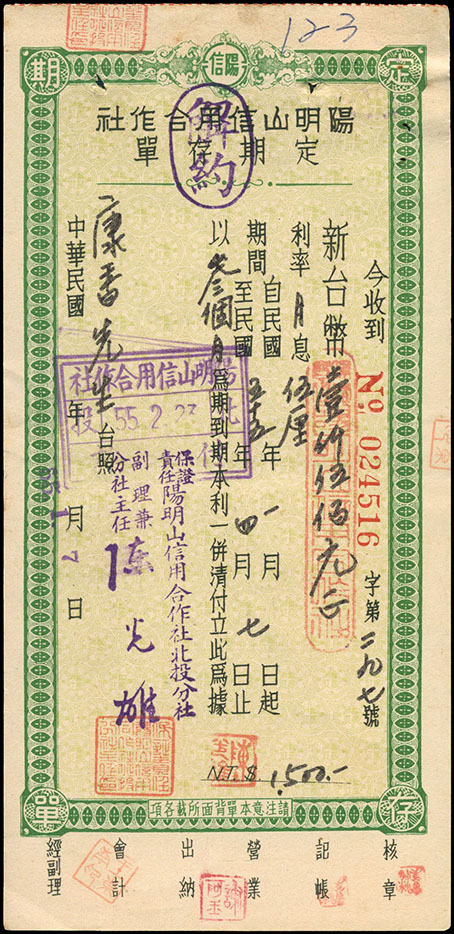 12-3
定
期
陽信
陽明山信用合作社
定期存單
解約
今收到
No. 024516
字第二九七號
新台幣壹仟伍佰元正
利率月息伍厘
期間自民國五十五年一月七日起
至民國 年四月 日止
以叁個月為期到期本利一併清付立此為據
NT.$1,500.-
康香先生台照
陽明山信用合作社
55.2.23
保證責任陽明山信用合作社北投分社
副理兼分社主任
陳光雄
中華民國 年 月 日
存
單
請注意本單背面所載各項
核章
記帳
營業
出納
會計
經副理